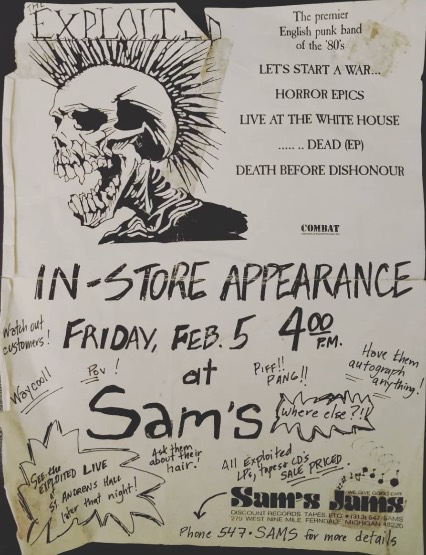 THE
EXPLOITED
The premier
English punk band
of the '80's
LET'S START A WAR...
HORROR EPICS
LIVE AT THE WHITE HOUSE
..... .. DEAD (EP)
DEATH BEFORE DISHONOUR
COMBAT
IN-STORE APPEARANCE
Watch out
customers!
FRIDAY, FEB. 5 4 00 P.M.
Pow!
at
Piff!!
PANG!!
Have them
autograph
anything!
Way cool!
Sam's
Where else?!!
See the
EXPLOITED LIVE
at
ST. ANDREWS HALL
later that night!
Ask them
about their
hair!
All Exploited
LPs, tapes & CD's
SALE PRICED.
Sam's Jams
DISCOUNT RECORDS TAPES ETC. • (313) 547-SAMS
279 WEST NINE MILE, FERNDALE, MICHIGAN 48220
Phone 547-SAMS for more details